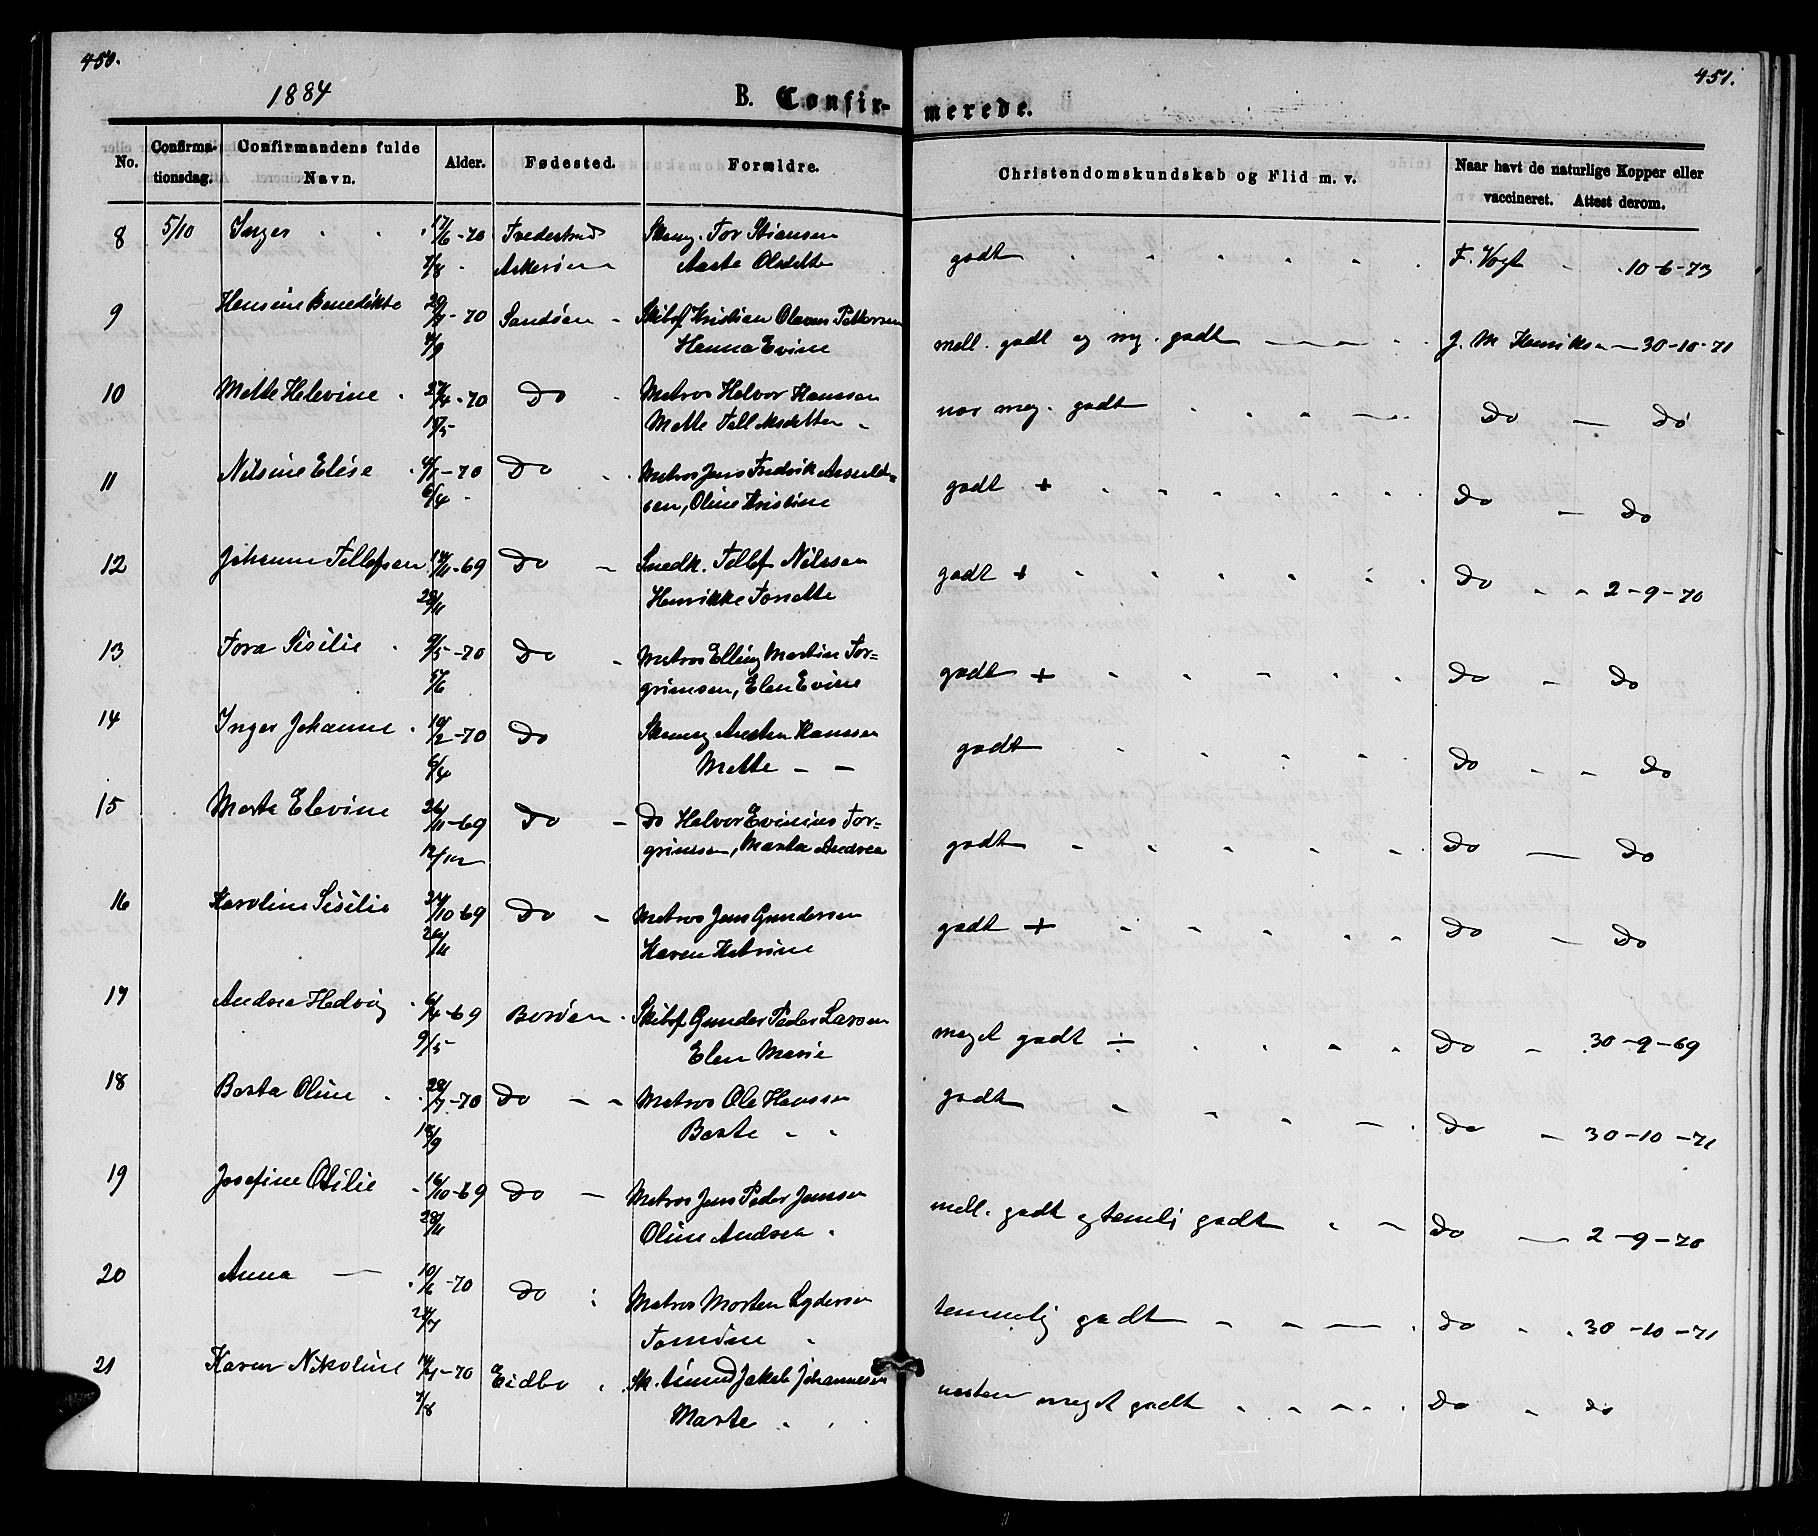 450.
451.
1884
B. Confir-
merede.
No.
Confirma-
tionsdag.
Confirmandens fulde
Navn.
Alder.
Fødested.
Forældre.
Christendomskundskab og Flid m. v.
Naar havt de naturlige Kopper eller
vaccineret. Attest derom.
8 5/10 Inger 17/6-70 Skomg. Tor Stiansen godt F. Vogt 10-6-73
7/8 Askerøen Aaste Olsdatter
9 Hansine Benedikte 29/7-70 Sandøen Skibsf Kristian Olaves Pettersen mell. godt og mg. godt J. M Henriksen 30-10-71
4/9 Hanna Evine
10 Mette Helevine 27/4-70 Do Matros Halvor Hanssen nær meg. godt Do Do
15/5 Mette Tellefsdatter
11 Nilsine Elise 4/2-70 Do Matros Jens Fredrik Arnulds=
godt + Do Do
6/4 sen, Oline Kristine
12 Johanne Tellefsen 14/11-69 Do Snedk. Tellef Nilssen godt + Do 2-9-70
28/11 Henrikke Tonette
13 Tora Sisilie 9/5-70 Do Matros Elling Martin Tor=
godt + Do Do
5/6 grimsen, Elen Evine
14 Inger Johanne 19/2-70 Do Hanssen godt Do Do
6/4 Mette
15 Marte Elevine 26/11-69 Do Do Halvor Evinius Tor=
godt Do Do
12/12 grimsen, Marta Andrea
16 Karoline Sisilie 24/10-69 Do Matros Jens Gundersen godt + Do Do
26/11 Karen Katrine
17 Andrea Hedvig 6/4-69 Borøen Skibsf Gunder Peder Larsen meget godt ÷ Do 30-9-69
9/5 Elen Marie
18 Berta Oline 28/7-70 Do Matros Ole Hanssen godt Do 30-10-71
18/9 Berte
19 Josefine Otilie 16/10-69 Do Matros Jens Peder Jenssen mell. godt og temlig godt Do 2-9-70
28/11 Oline Andrea
20 Anna 10/6-70 Do Matros Morten Lydersen temmelig godt Do 30-10-71
24/7 Tomine
21 Karen Nikoline 14/7-70 Eidbo Jakob Johannesen næsten meget godt Do do
7/8 Marte